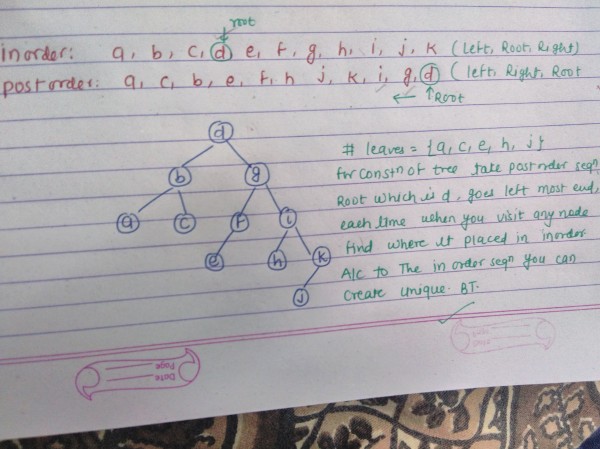 root
inorder: a, b, c, d e, f, g, h, i, j, k (Left, Root, Right)
postorder: a, c, b, e, f, h j, k, i, g, d (left, Right, Root
← ↑Root
d
b g
a c f i
e h k
j
# leaves = {a, c, e, h, j}
for constn of tree take postorder seqn
Root which is d, goes left most end,
each time when you visit any node
find where it placed in inorder
A/c to The in order seqn you can
create unique. BT.
Date
Page